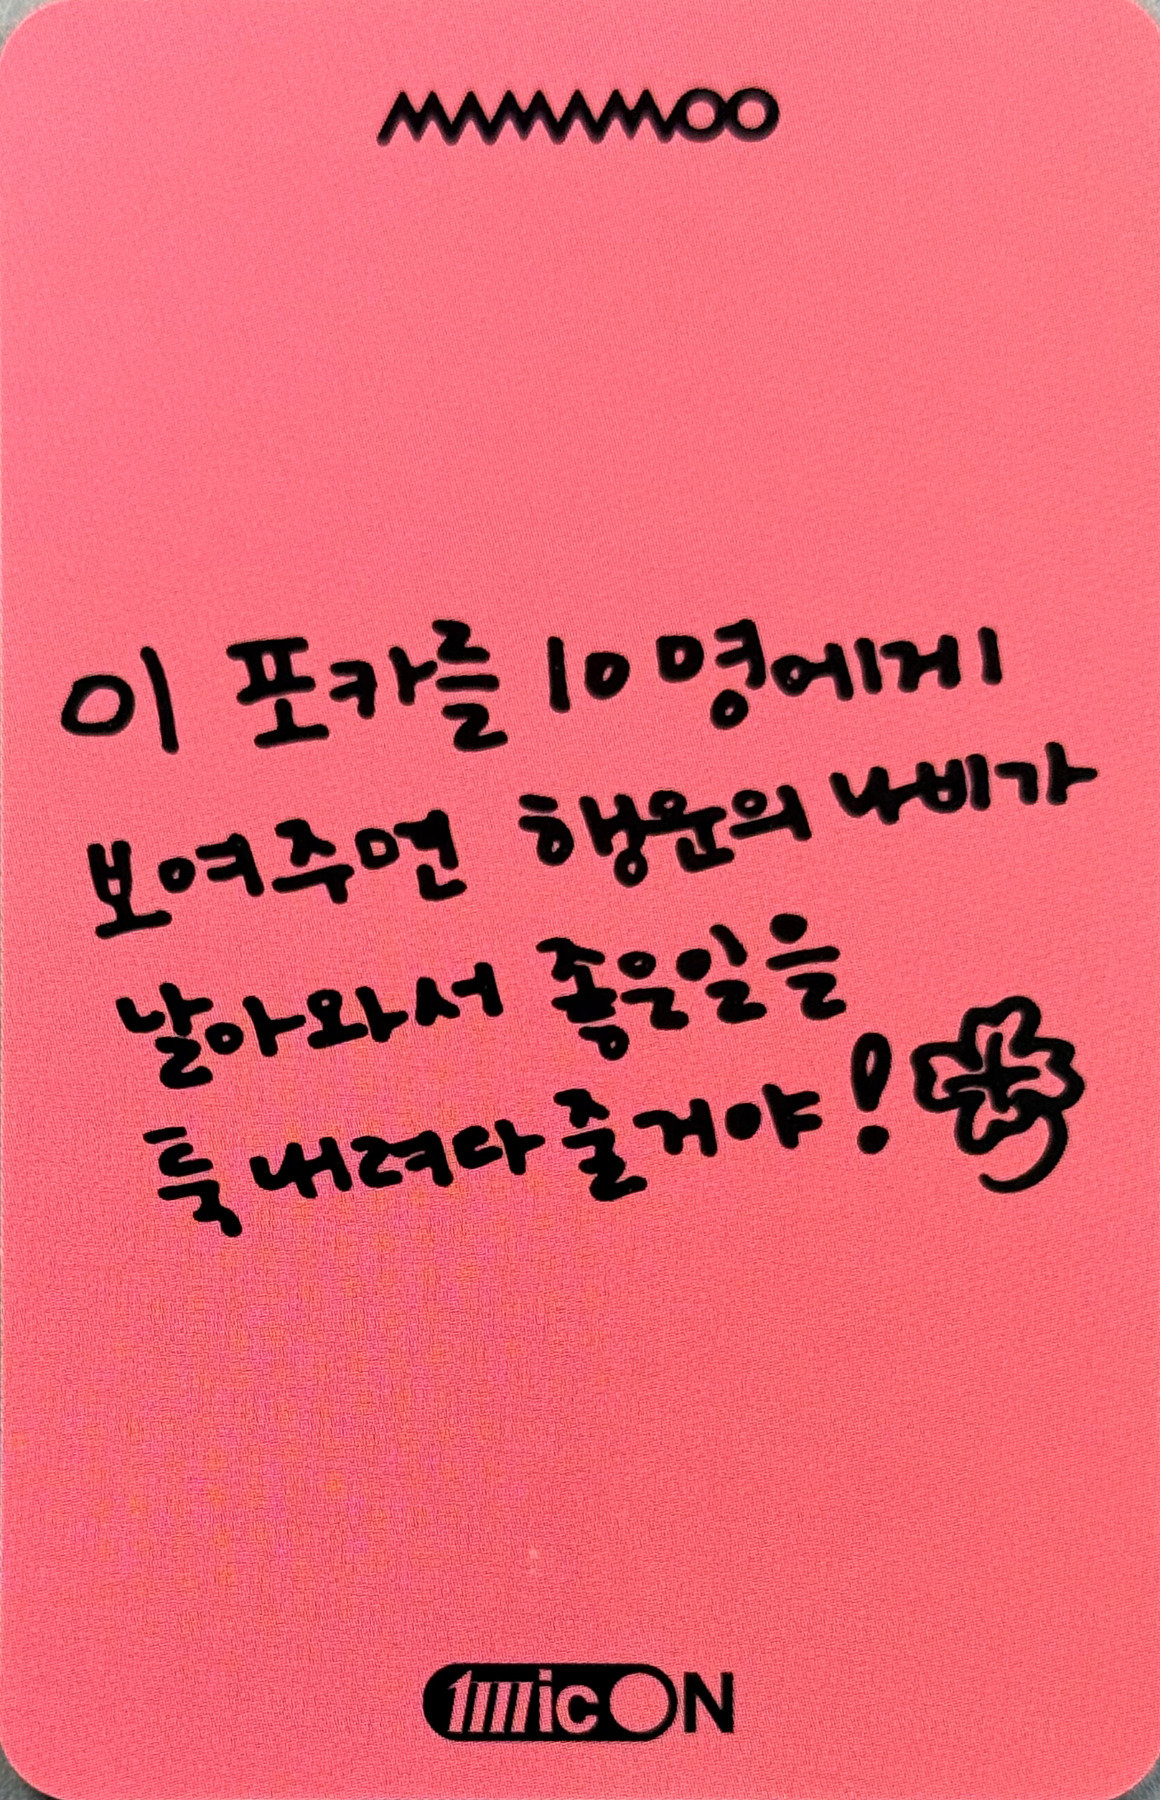 MAMAMOO
이 포카를 10명에게
보여주면 행운의 나비가
날아와서 좋은일을
툭 내려다 줄거야!
1micON